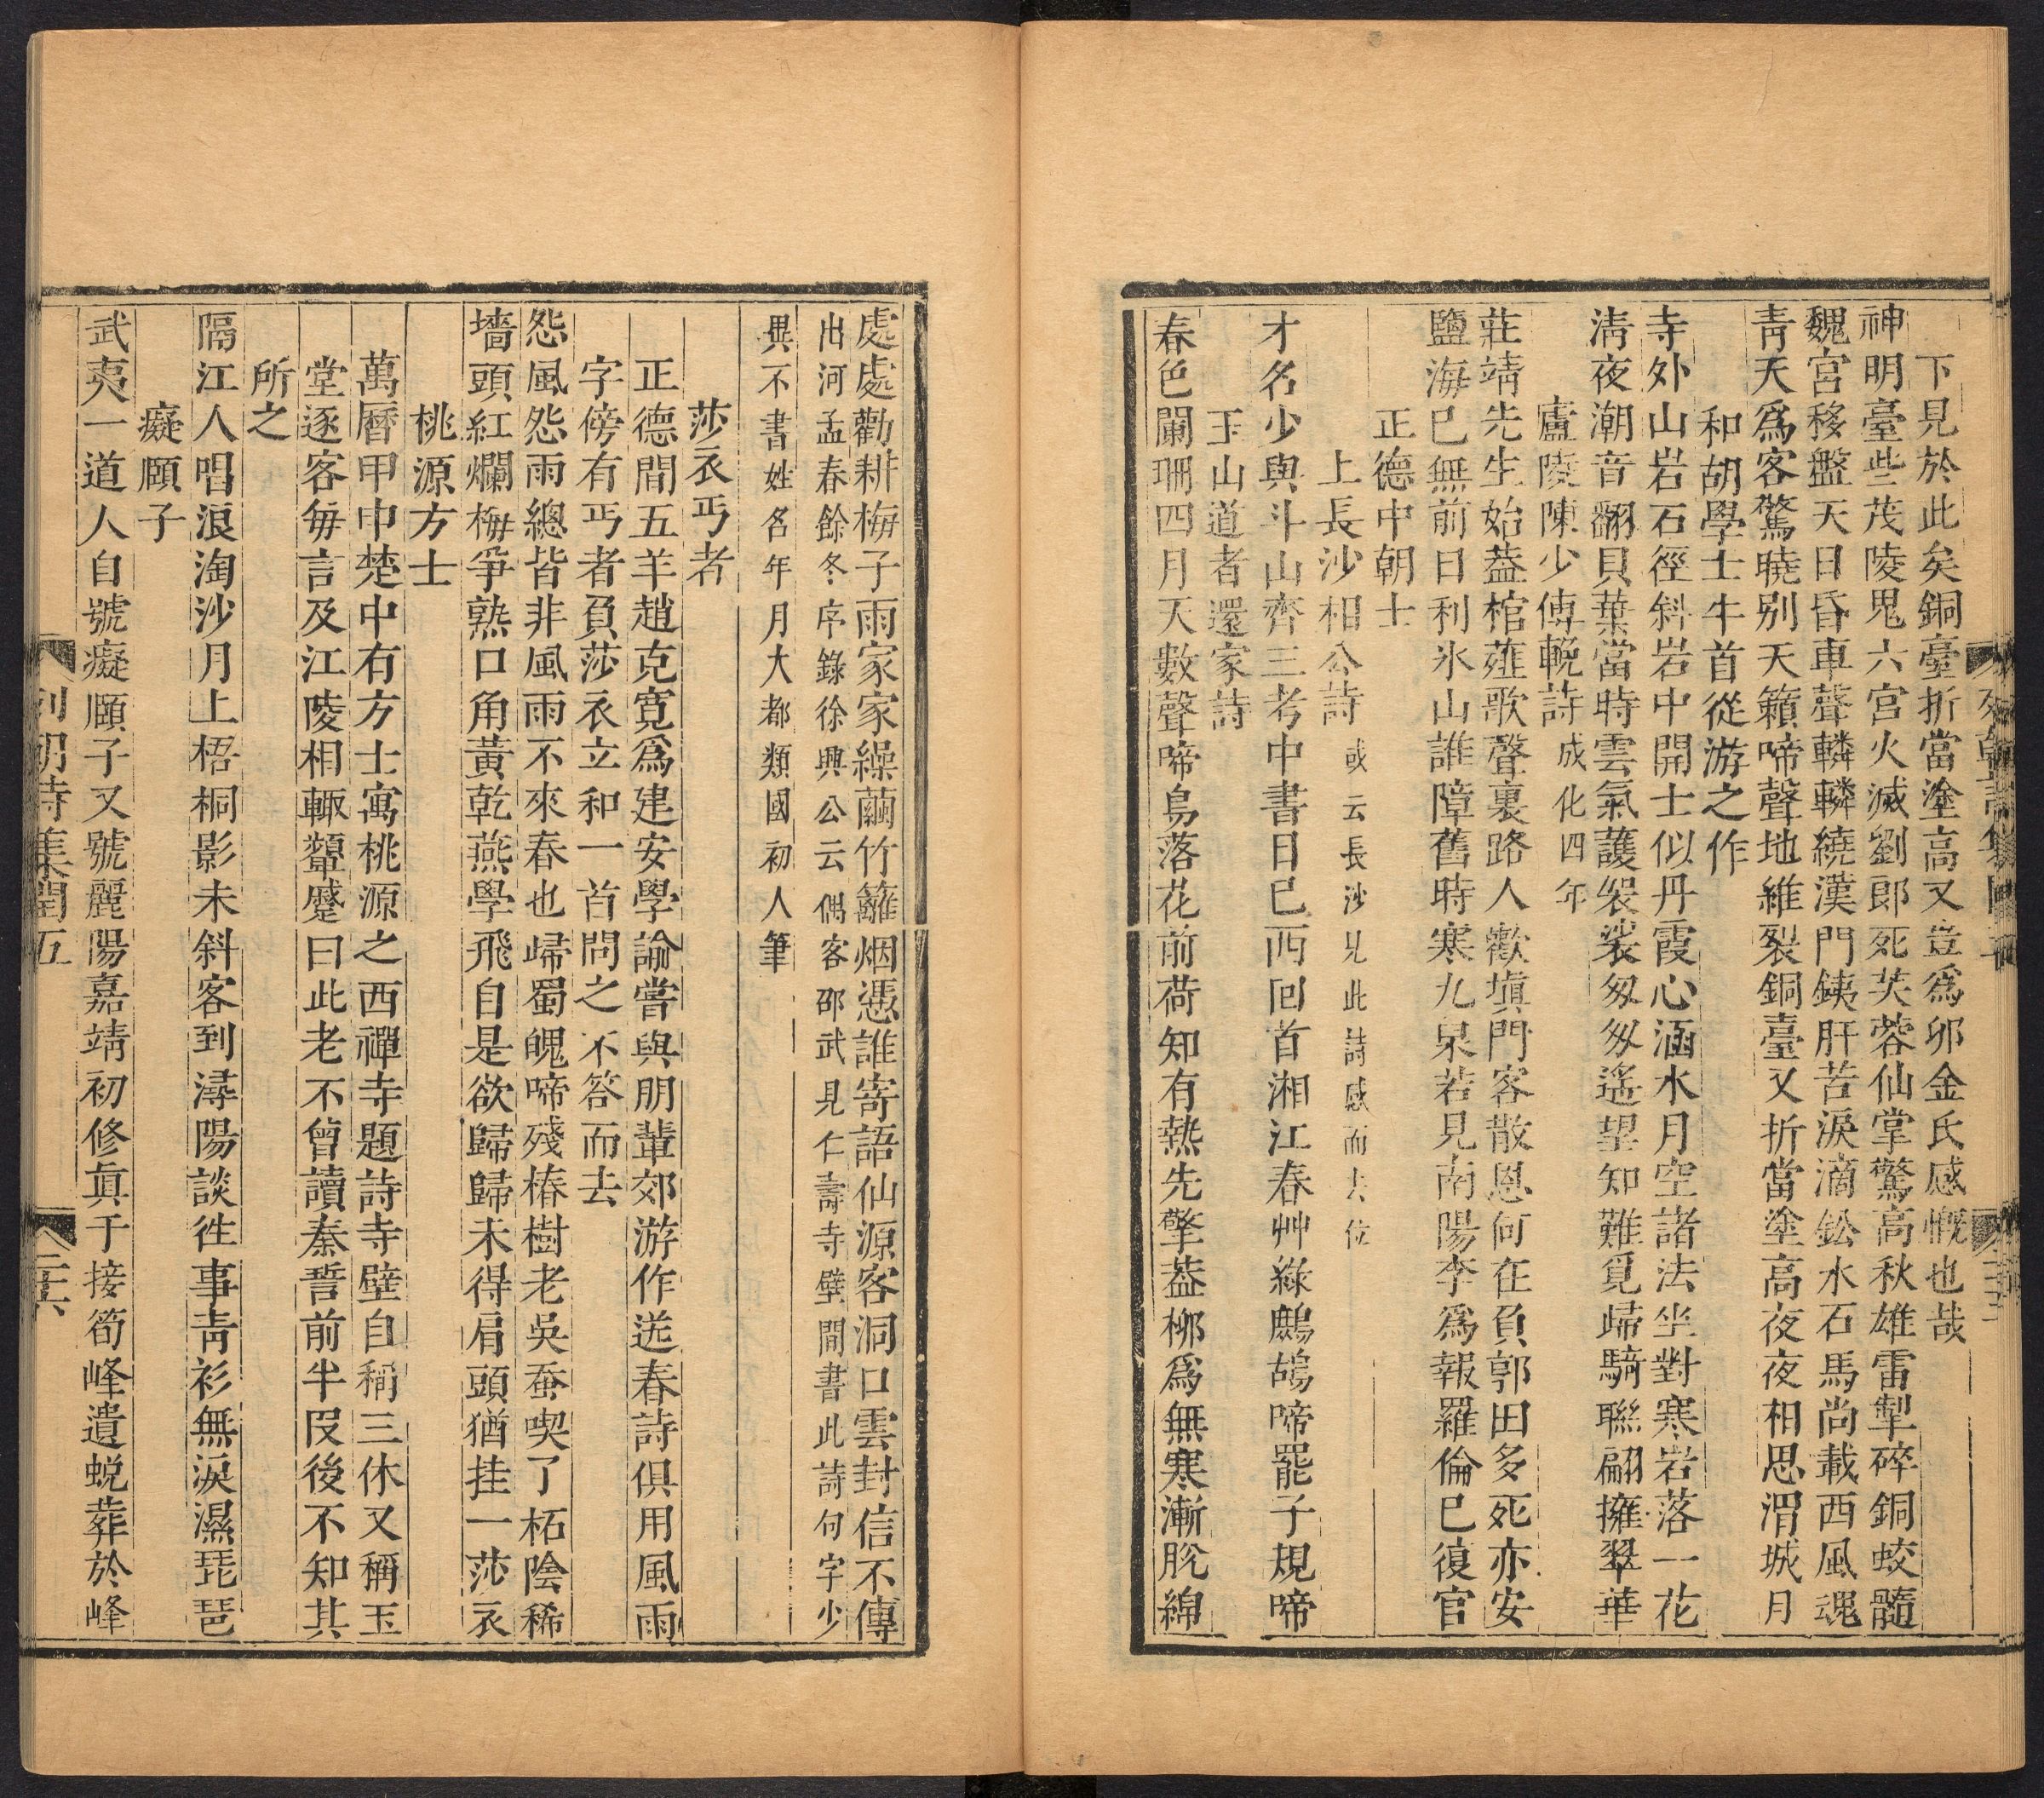 下見於此矣銅臺折當塗高又豈爲卯金氏感慨也哉
神明臺些茂陵鬼六宮火滅劉郎死芙蓉仙掌驚高秋雄雷掣碎銅蛟髓
魏宮移盤天日昏車聲轔轔繞漢門鐵肝苦淚滴鉛水石馬尚載西風魂
靑天爲客驚曉别天籟啼聲地維裂銅臺又折當塗高夜夜相思渭城月
和胡學士牛首從游之作
寺外山岩石徑斜岩中開士似丹霞心涵水月空諸法坐對寒岩落一花
淸夜潮音翻貝葉當時雲氣護袈裟匆匆遙望知難覓歸騎聯翩擁翠華
廬陵陳少傅輓詩成化四年
莊靖先生始葢棺薤歌聲裏路人歡塡門客散恩何在負郭田多死亦安
鹽海已無前日利氷山誰障舊時寒九泉若見南陽李爲報羅倫已復官
正德中朝士
上長沙相公詩或云長沙見此詩感而去位
才名少與斗山齊三考中書日已西囘首湘江春艸綠鷓鴣啼罷子規啼
玉山道者還家詩
春色闌珊四月天數聲啼鳥落花前荷知有熱先擎葢柳爲無寒漸脫綿
處處勸耕梅子雨家家繰繭竹籬烟憑誰寄語仙源客洞口雲封信不傳
出河孟春餘冬序錄徐興公云偶客邵武見仁壽寺壁間書此詩句字少
異不書姓名年月大都類國初人筆
莎衣丐者
正德間五羊趙克寬爲建安學諭嘗與朋輩郊游作送春詩俱用風雨
字傍有丐者負莎衣立和一首問之不答而去
怨風怨雨總皆非風雨不來春也歸蜀魄啼殘椿樹老吳蚕喫了柘陰稀
墻頭紅爛梅爭熟口角黃乾燕學飛自是欲歸歸未得肩頭猶挂一莎衣
桃源方士
萬曆甲申楚中有方士寓桃源之西禪寺題詩寺壁自稱三休又稱玉
堂逐客每言及江陵相輙顰蹙曰此老不曾讀秦誓前半叚後不知其
所之
隔江人唱浪淘沙月上梧桐影未斜客到潯陽談徃事靑衫無淚濕琵琶
癡頤子
武夷一道人自號癡頤子又號麗陽嘉靖初修眞于接筍峰遺蛻葬於峰
列朝詩集閏五
二六